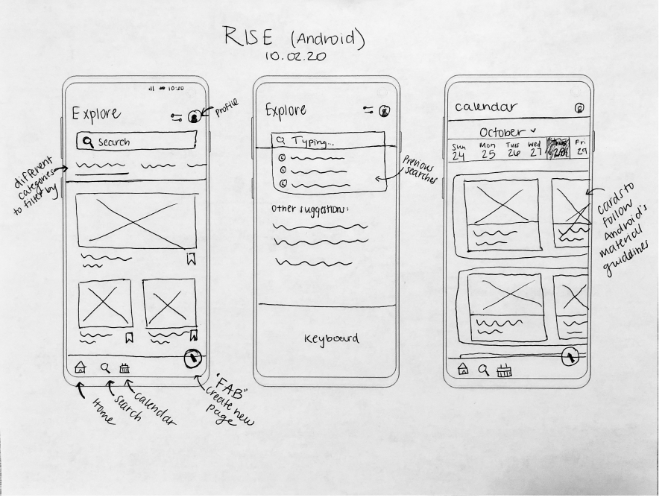 RISE (Android)
10.02.20
10:20
Explore
Profile
Search
different
categories
to filter by
Home
Search
calendar
"FAB"
Create new
page
Explore
Typing...
Previous
searches
Other suggestions:
Keyboard
calendar
October
Sun Mon Tue Wed Fri
24 25 26 27 28 29
Cards to
follow
Android's
material
guidelines